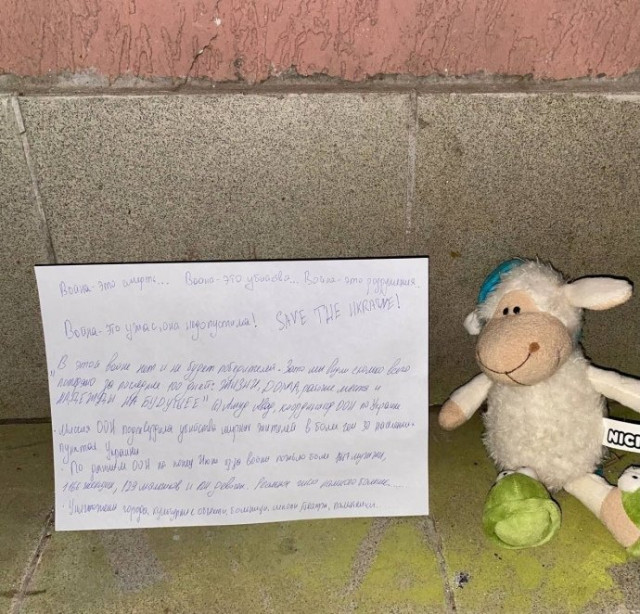 Война-это смерть... Война-это убийства... Война-это разрушения...
Война-это ужас, она недопустима! SAVE THE UKRAINE!
"В этой войне нет и не будет победителей. Зато мы видели сколько всего
потеряно за последние 100 дней: ЖИЗНИ, ДОМА, рабочие места и
НАДЕЖДЫ НА БУДУЩЕЕ" координатор ООН по Украине
· Миссия ООН подтвердила убийства мирных жителей в более чем 30 населённых
пунктах Украины
· По данным ООН на конец из-за войны погибло более мужчин,
женщин, мальчиков и девочек. Реальное число намного больше...
· Уничтожены города, культурные больницы, школы,
NICI